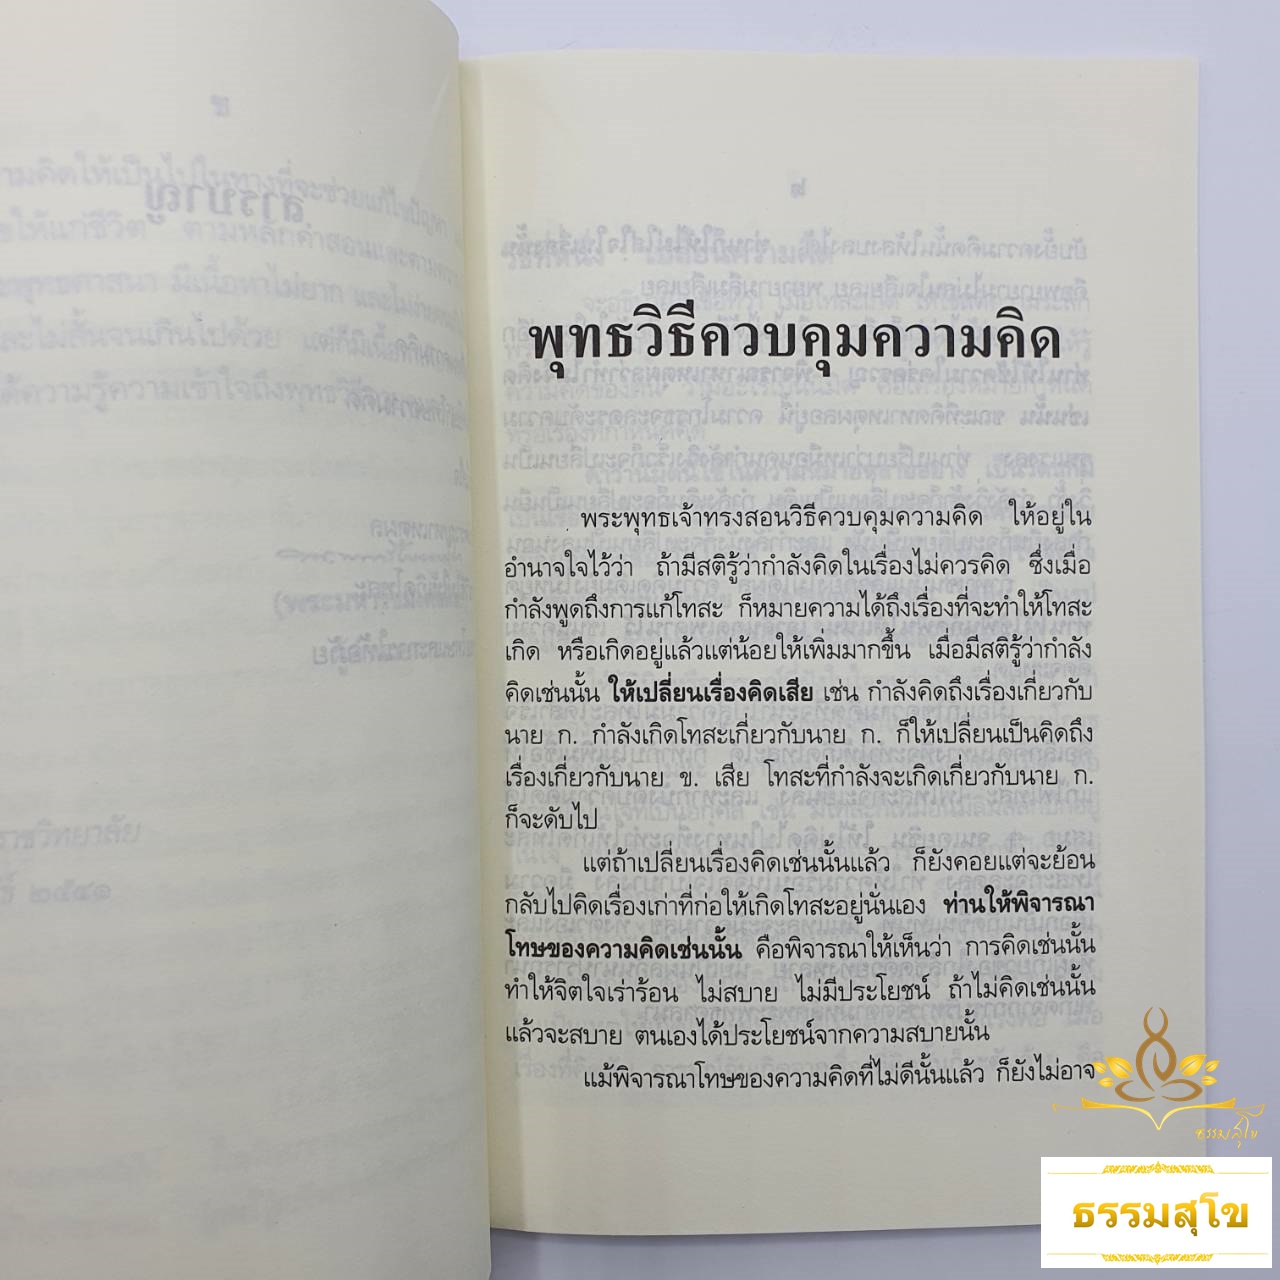 พุทธวิธีควบคุมความคิด
พระพุทธเจ้าทรงสอนวิธีควบคุมความคิด ให้อยู่ใน
อำนาจใจไว้ว่า ถ้ามีสติรู้ว่ากำลังคิดในเรื่องไม่ควรคิด ซึ่งเมื่อ
กำลังพูดถึงการแก้โทสะ ก็หมายความได้ถึงเรื่องที่จะทำให้โทสะ
เกิด หรือเกิดอยู่แล้วแต่น้อยให้เพิ่มมากขึ้น เมื่อมีสติรู้ว่ากำลัง
คิดเช่นนั้น ให้เปลี่ยนเรื่องคิดเสีย เช่น กำลังคิดถึงเรื่องเกี่ยวกับ
นาย ก. กำลังเกิดโทสะเกี่ยวกับนาย ก. ก็ให้เปลี่ยนเป็นคิดถึง
เรื่องเกี่ยวกับนาย ข. เสีย โทสะที่กำลังจะเกิดเกี่ยวกับนาย ก.
ก็จะดับไป
แต่ถ้าเปลี่ยนเรื่องคิดเช่นนั้นแล้ว ก็ยังคอยแต่จะย้อน
กลับไปคิดเรื่องเก่าที่ก่อให้เกิดโทสะอยู่นั่นเอง ท่านให้พิจารณา
โทษของความคิดเช่นนั้น คือพิจารณาให้เห็นว่า การคิดเช่นนั้น
ทำให้จิตใจเร่าร้อน ไม่สบาย ไม่มีประโยชน์ ถ้าไม่คิดเช่นนั้น
แล้วจะสบาย ตนเองได้ประโยชน์จากความสบายนั้น
แม้พิจารณาโทษของความคิดที่ไม่ดีนั้นแล้ว ก็ยังไม่อาจ
ธรรมสุโข
ธรรมสุโข